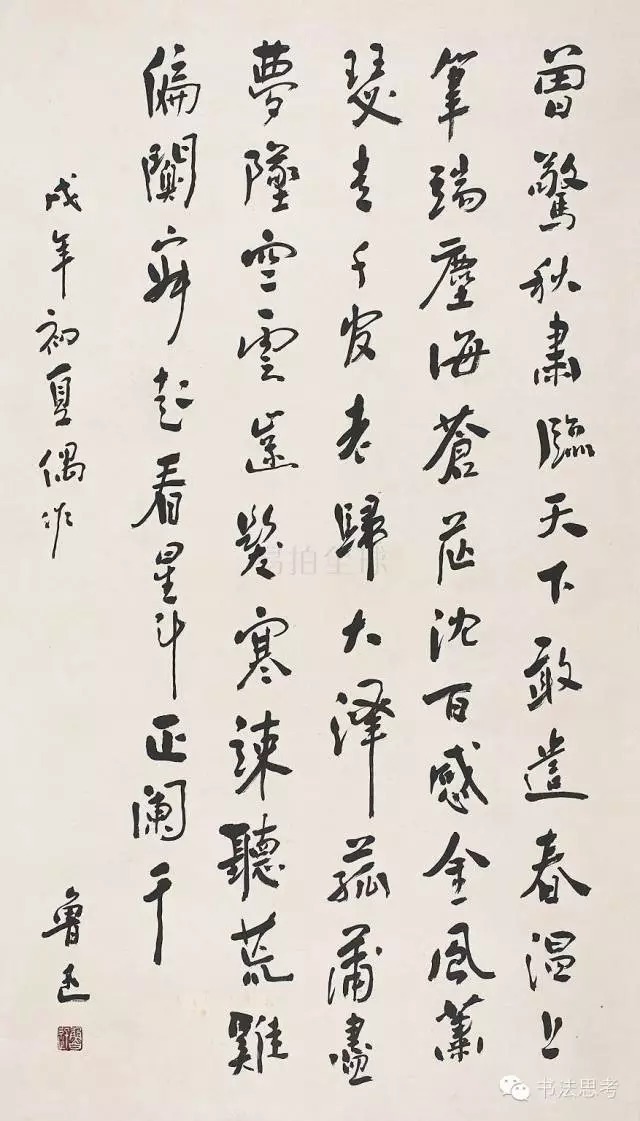 曾驚秋肅臨天下敢遣春温上
筆端塵海蒼茫沈百感金風蕭
瑟走千官老歸大澤菰蒲盡
夢墜空雲齒髮寒竦聽荒雞
偏闃寂起看星斗正闌干
戌年初夏偶作
魯迅
拍全球
书法思考